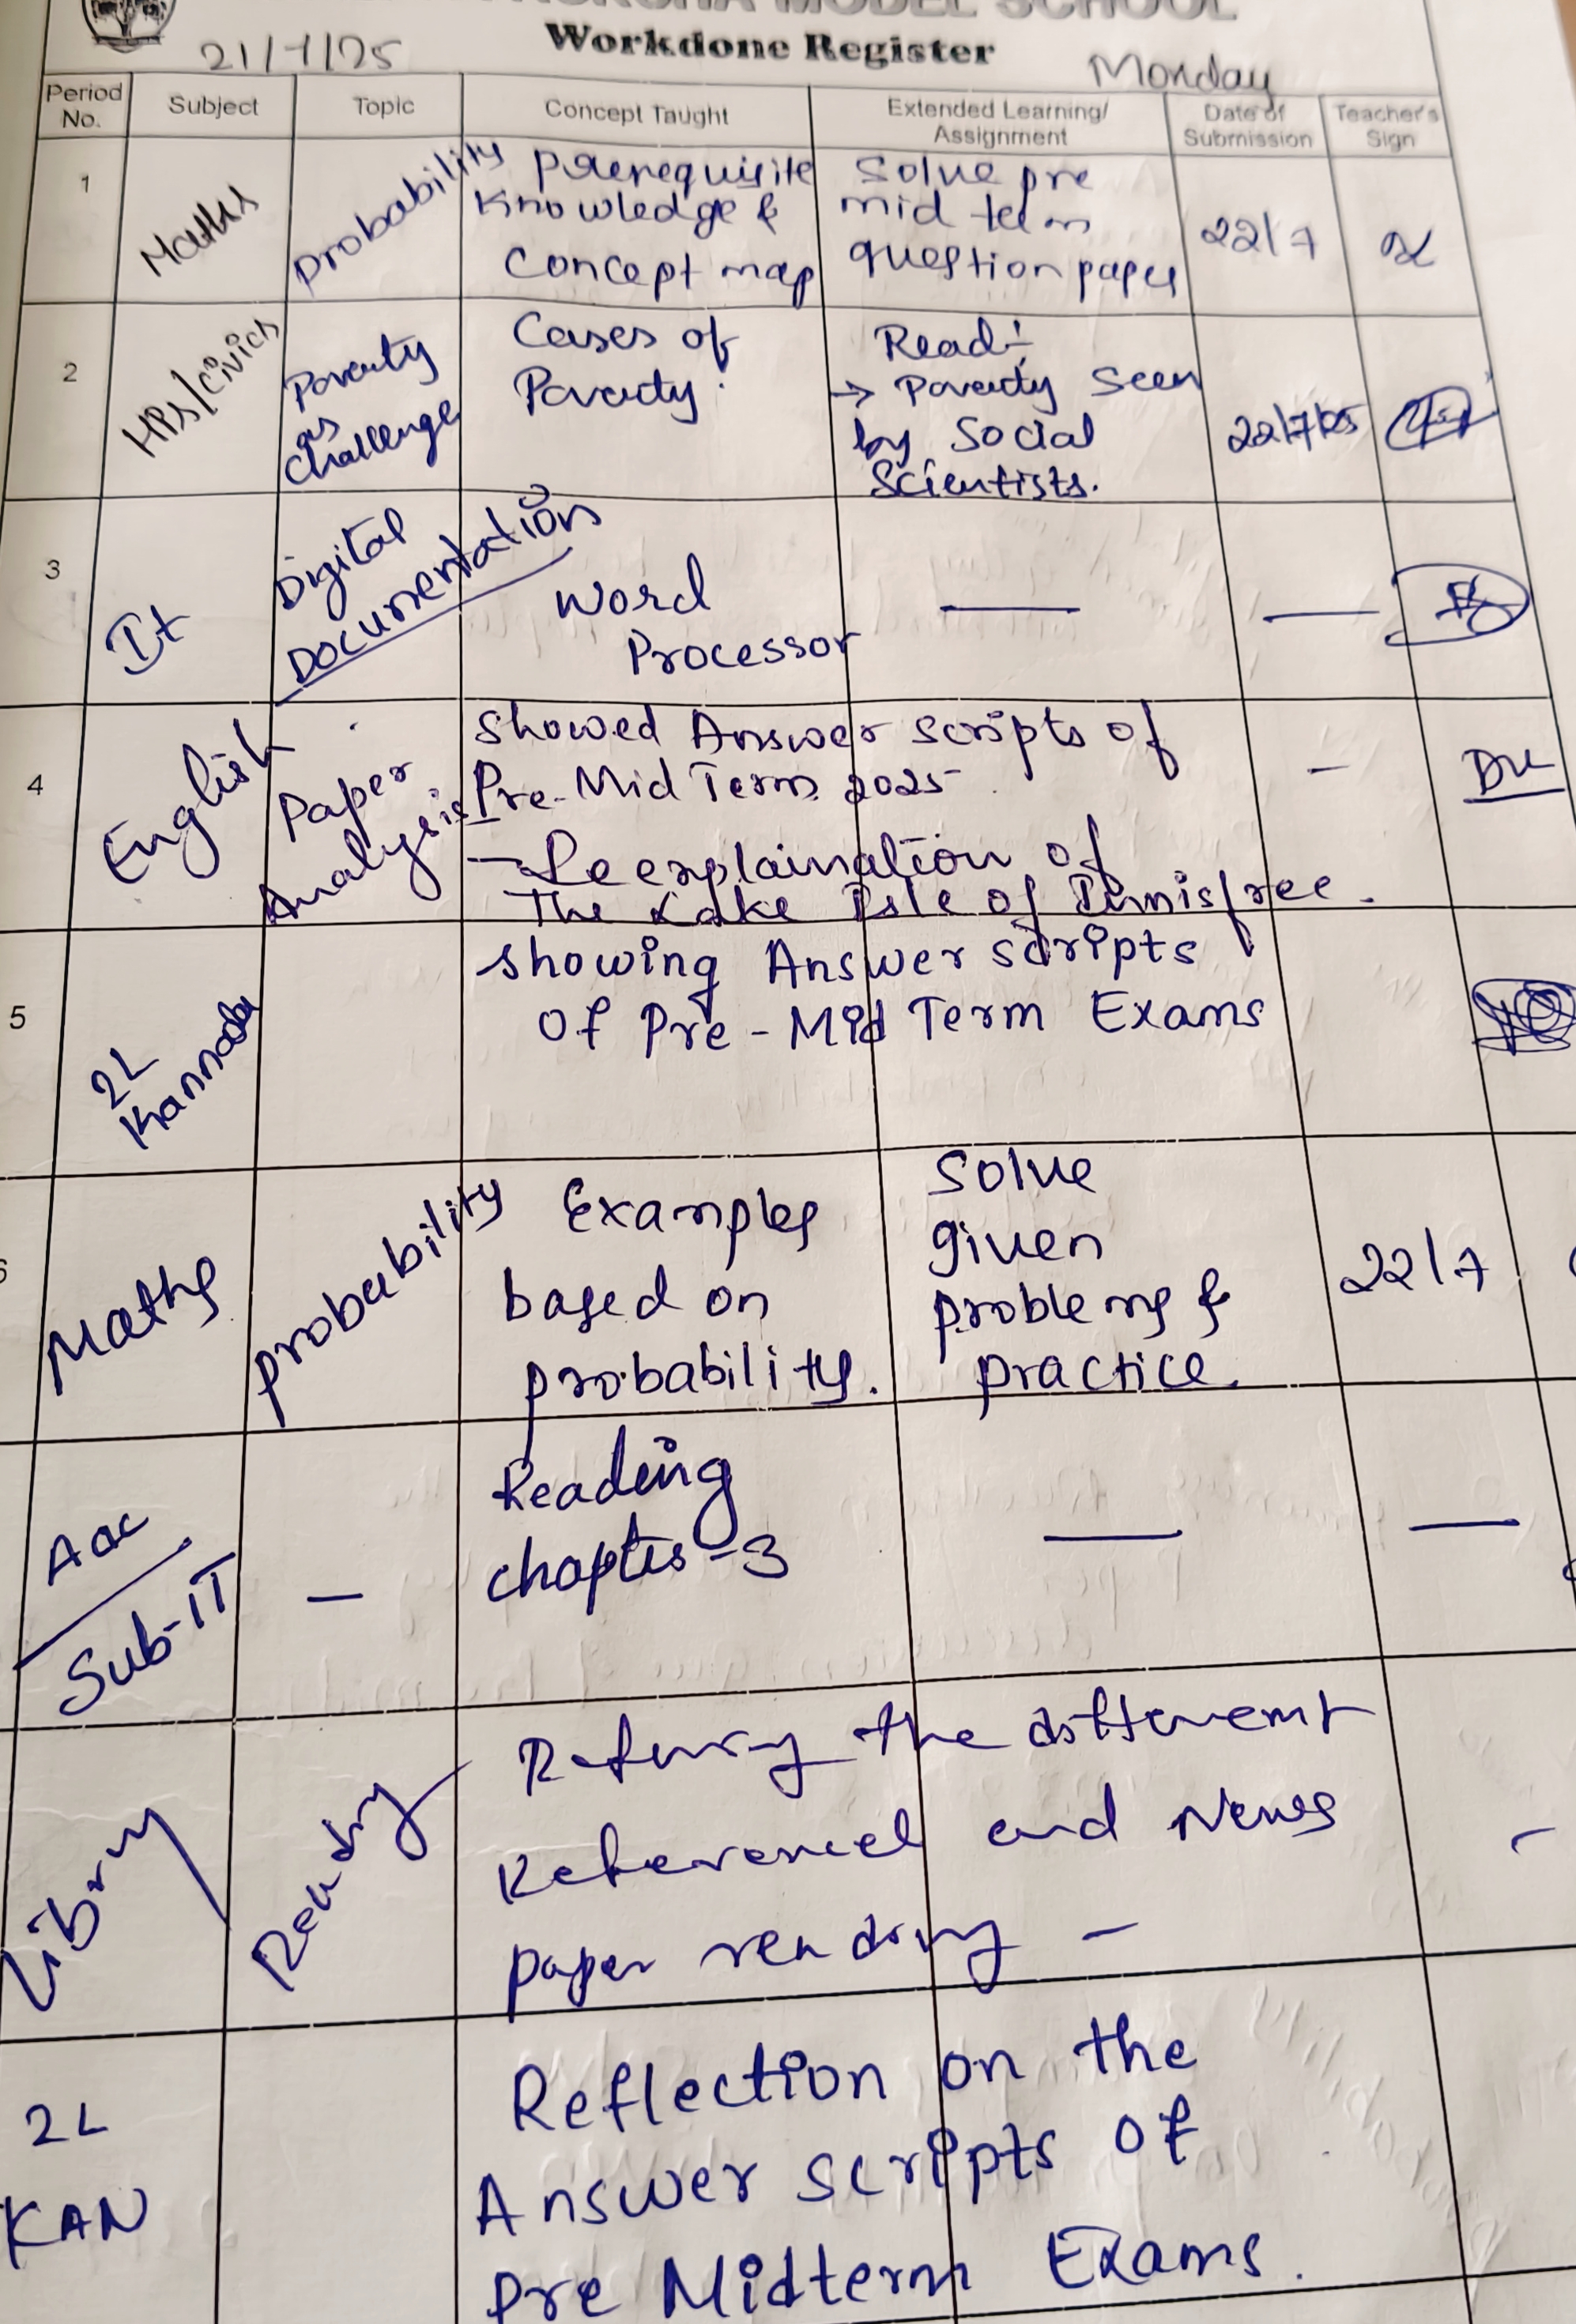 MODEL SCHOOL
Workdone Register
21/7/25 Monday
Period No. Subject Topic Concept Taught Extended Learning/ Assignment Date of Submission Teacher's Sign
1 Maths Probability
Prerequisite
Knowledge &
Concept map
Solve pre
mid term
question paper
22/7
2 HPS/Civics
Poverty
as
Challenge
Cases of
Poverty.
Read:
→ Poverty seen
by Social
Scientists.
22/7/25
3 It
Digital
Documentation
Word
Processor
4 English
Paper
Analysis
Showed Answer scripts of
Pre-Mid Term 2025 -
- Re explaination of
The Lake Isle of Innisfree.
5 2L
Kannada
showing Answer scripts
Of Pre-Mid Term Exams
6 Maths probability
Examples
based on
probability.
Solve
given
problems &
practice.
22/7
Sub-IT
-
Reading
chapter-3
Library Reading
the different
and News
paper reading -
2L
KAN
Reflection on the
Answer scripts of
Pre Midterm Exams.